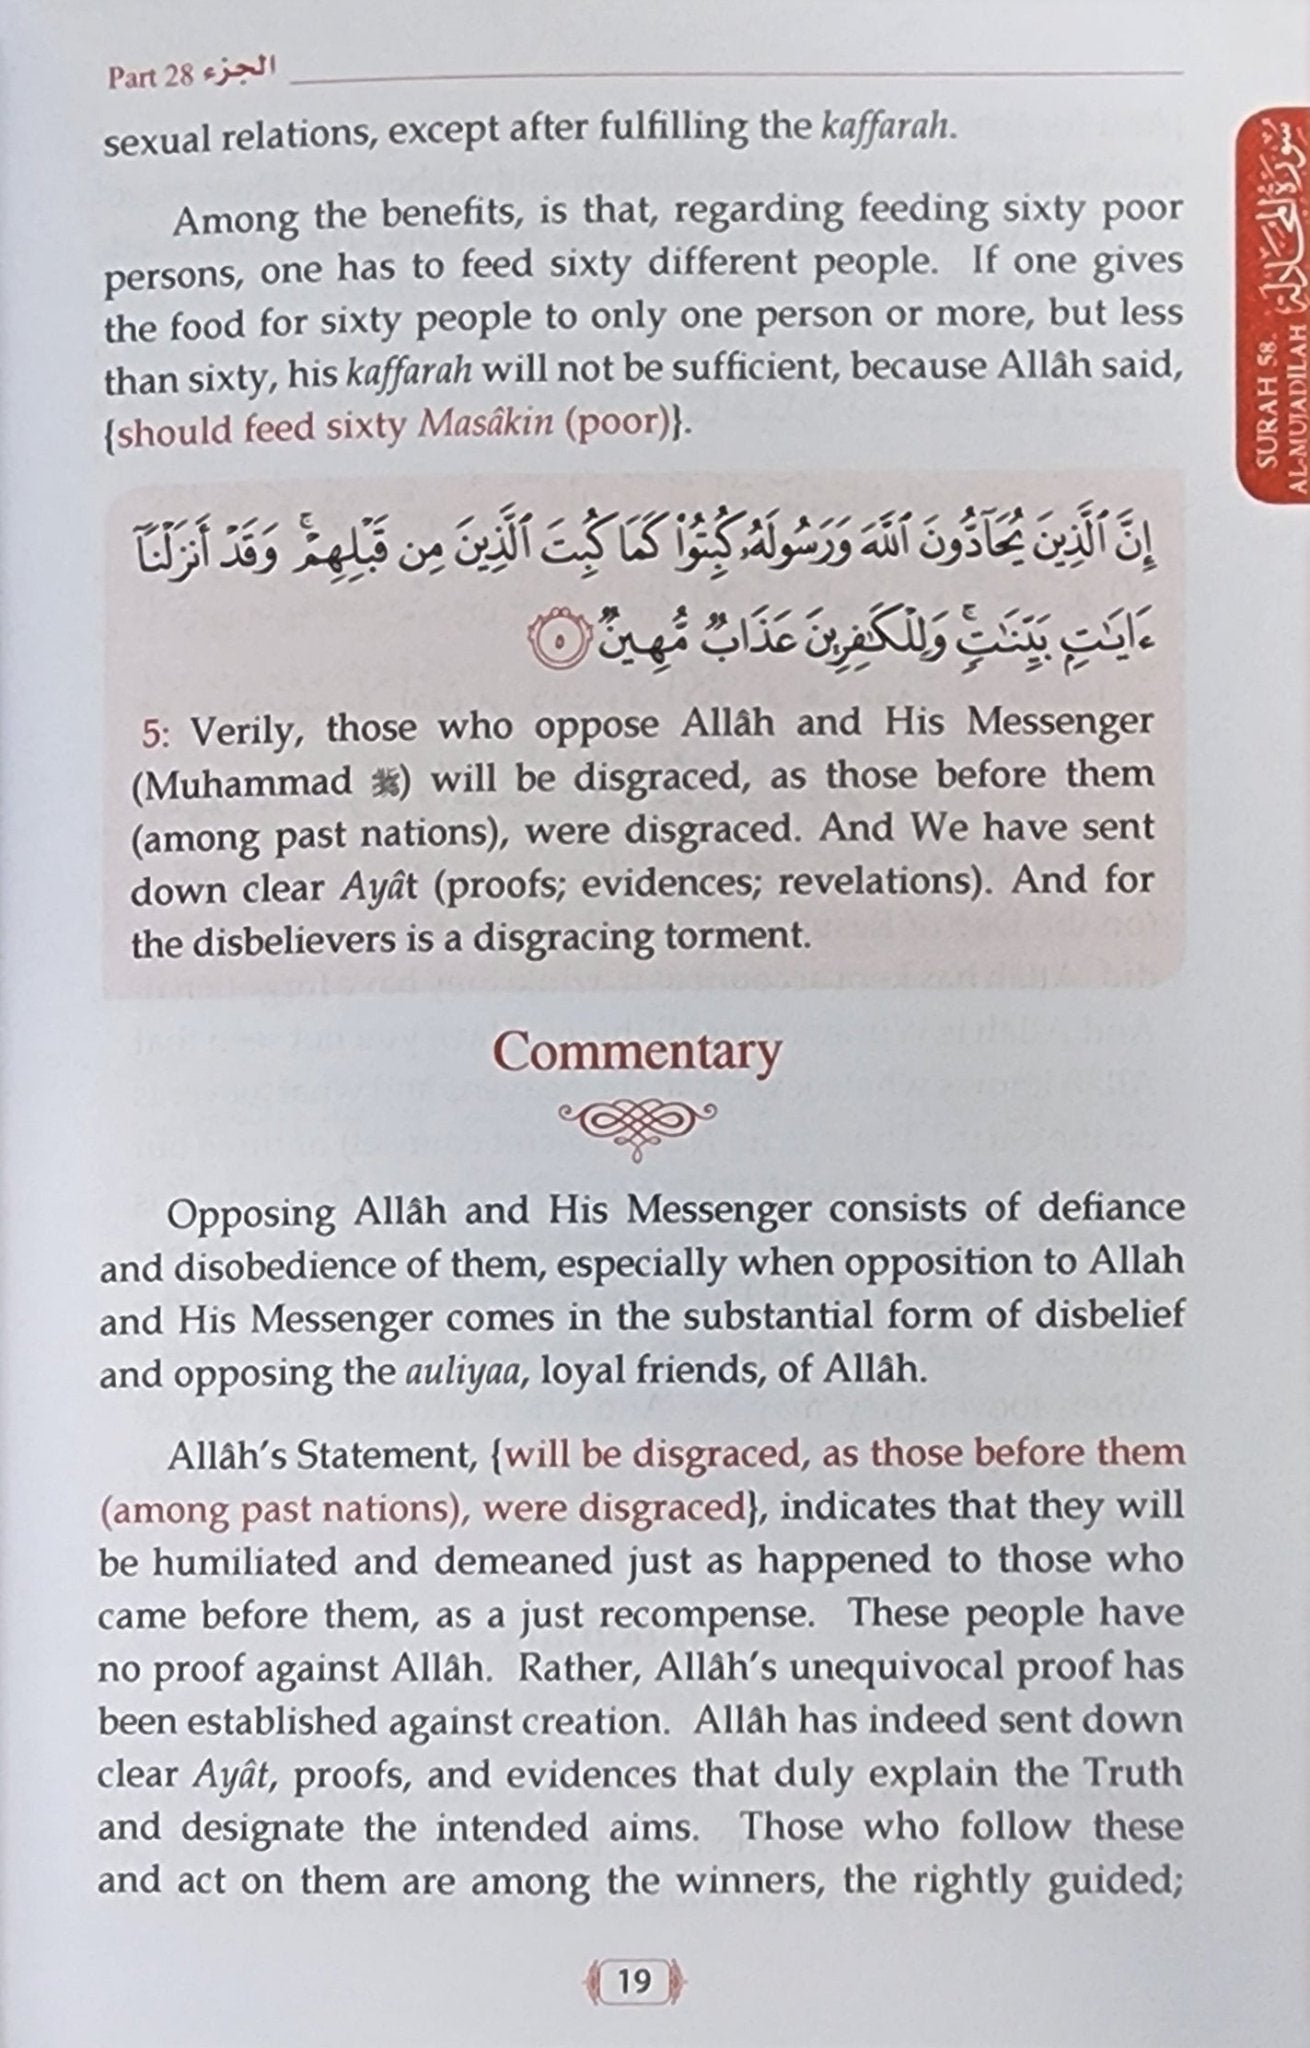 Part 28 الجزء
sexual relations, except after fulfilling the kaffarah.
Among the benefits, is that, regarding feeding sixty poor
persons, one has to feed sixty different people. If one gives
the food for sixty people to only one person or more, but less
than sixty, his kaffarah will not be sufficient, because Allâh said,
{should feed sixty Masâkin (poor)}.
إِنَّ ٱلَّذِينَ يُحَآدُّونَ ٱللَّهَ وَرَسُولَهُۥ كُبِتُوا۟ كَمَا كُبِتَ ٱلَّذِينَ مِن قَبْلِهِمْ ۚ وَقَدْ أَنزَلْنَآ
ءَايَـٰتٍۭ بَيِّنَـٰتٍ ۚ وَلِلْكَـٰفِرِينَ عَذَابٌ مُّهِينٌ ٥
5: Verily, those who oppose Allâh and His Messenger
(Muhammad ﷺ) will be disgraced, as those before them
(among past nations), were disgraced. And We have sent
down clear Ayât (proofs; evidences; revelations). And for
the disbelievers is a disgracing torment.
Commentary
Opposing Allâh and His Messenger consists of defiance
and disobedience of them, especially when opposition to Allah
and His Messenger comes in the substantial form of disbelief
and opposing the auliyaa, loyal friends, of Allâh.
Allâh's Statement, {will be disgraced, as those before them
(among past nations), were disgraced}, indicates that they will
be humiliated and demeaned just as happened to those who
came before them, as a just recompense. These people have
no proof against Allâh. Rather, Allâh's unequivocal proof has
been established against creation. Allâh has indeed sent down
clear Ayât, proofs, and evidences that duly explain the Truth
and designate the intended aims. Those who follow these
and act on them are among the winners, the rightly guided;
19
SURAH 58.
AL-MUJADILAH سورة المجادلة